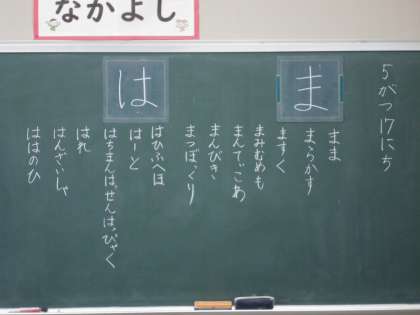 なかよし
5がつ17にち
ま
まま
まらかす
ますく
まみむめも
まんてぃこあ
まんびき
まつぼっくり
は
はひふへほ
はーと
はちまんはっせんはっぴゃく
はれ
はんざいしゃ
ははのひ